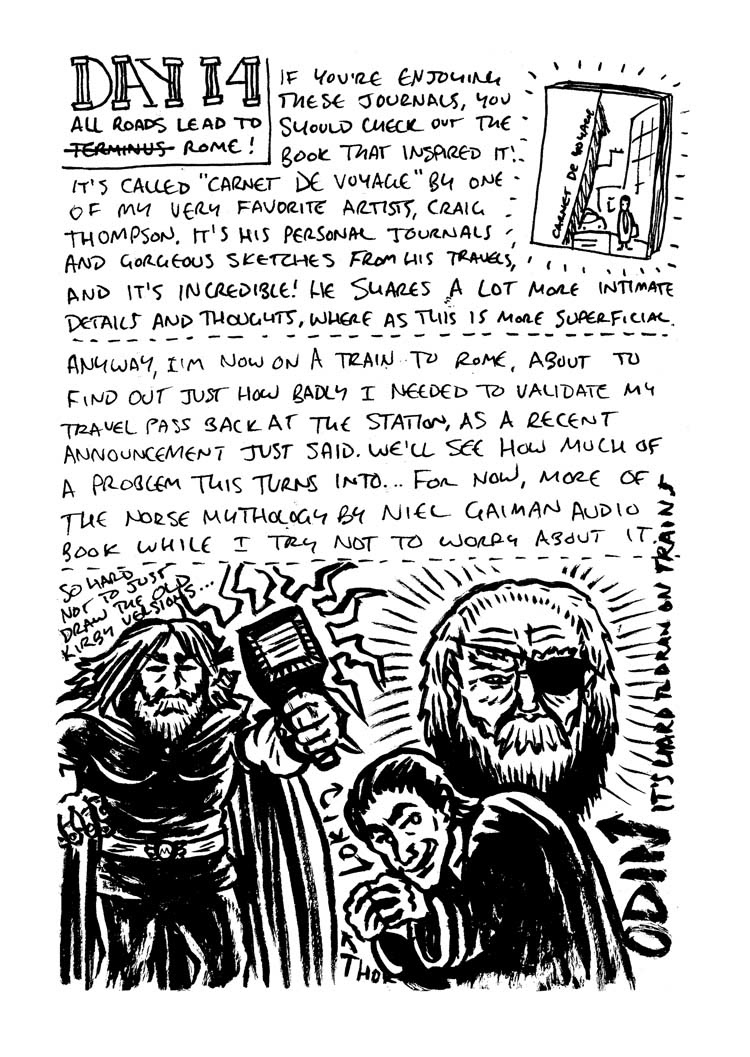 DAY 14
ALL ROADS LEAD TO
TERMINUS ROME!
IF YOU'RE ENJOYING
THESE JOURNALS, YOU
SHOULD CHECK OUT THE
BOOK THAT INSPIRED IT.
IT'S CALLED "CARNET DE VOYAGE" BY ONE
OF MY VERY FAVORITE ARTISTS, CRAIG
THOMPSON. IT'S HIS PERSONAL JOURNALS
AND GORGEOUS SKETCHES FROM HIS TRAVELS,
AND IT'S INCREDIBLE! HE SHARES A LOT MORE INTIMATE
DETAILS AND THOUGHTS, WHERE AS THIS IS MORE SUPERFICIAL.
CARNET DE VOYAGE
ANYWAY, I'M NOW ON A TRAIN TO ROME, ABOUT TO
FIND OUT JUST HOW BADLY I NEEDED TO VALIDATE MY
TRAVEL PASS BACK AT THE STATION, AS A RECENT
ANNOUNCEMENT JUST SAID. WE'LL SEE HOW MUCH OF
A PROBLEM THIS TURNS INTO... FOR NOW, MORE OF
THE NORSE MYTHOLOGY BY NIEL GAIMAN AUDIO
BOOK WHILE I TRY NOT TO WORRY ABOUT IT.
SO HARD
NOT TO JUST
DRAW THE OLD
KIRBY VERSIONS...
LOKI
THOR
ODIN
IT'S HARD TO DRAW ON TRAINS